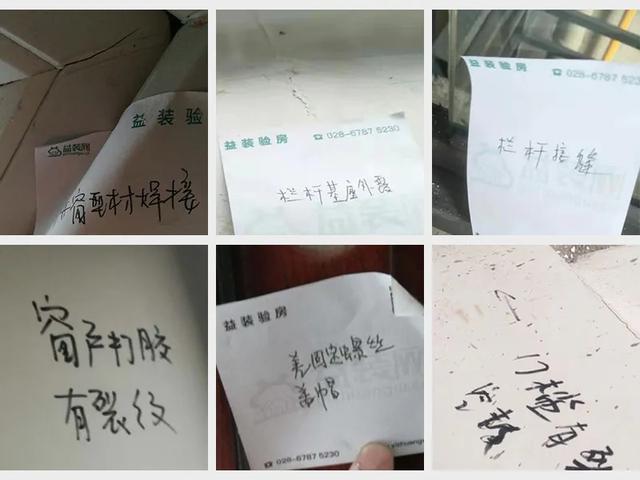 益装网
益装验房
窗型材焊接
益装验房 ☎ 028-6787 5230
栏杆基座外露
益装验房 ☎ 028-6787 5230
栏杆接缝
窗户打胶
有裂纹
益装验房
无固定螺丝
盖帽
☎ 028-6787 5230
门槛有
空鼓